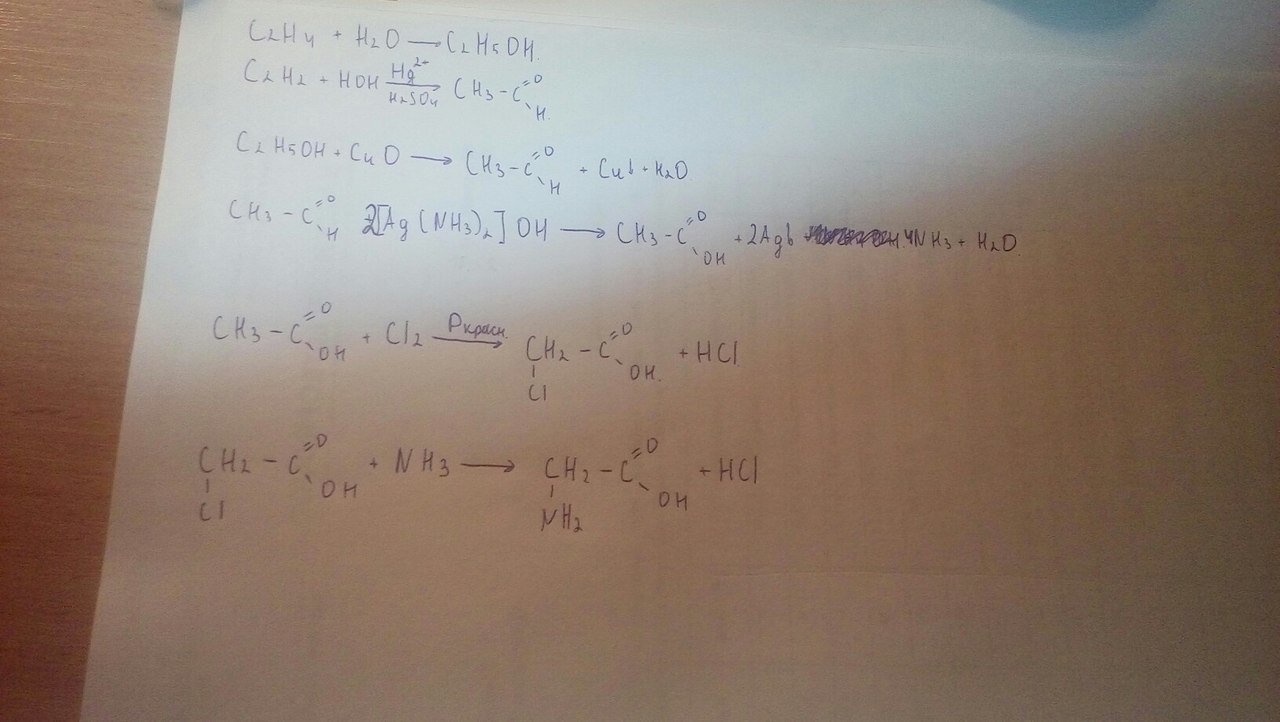 C2H4 + H2O → C2H5OH.
C2H2 + HOH Hg2+ H2SO4 → CH3-C=O H.
C2H5OH + CuO → CH3-C=O H + Cu↓ + H2O
CH3-C=O H 2[Ag(NH3)2]OH → CH3-C=O OH + 2Ag↓ 4NH3 + H2O.
CH3-C=O OH + Cl2 Pкрасн. → CH2-C=O OH. + HCl
Cl
CH2-C=O OH + NH3 → CH2-C=O OH + HCl
Cl NH2